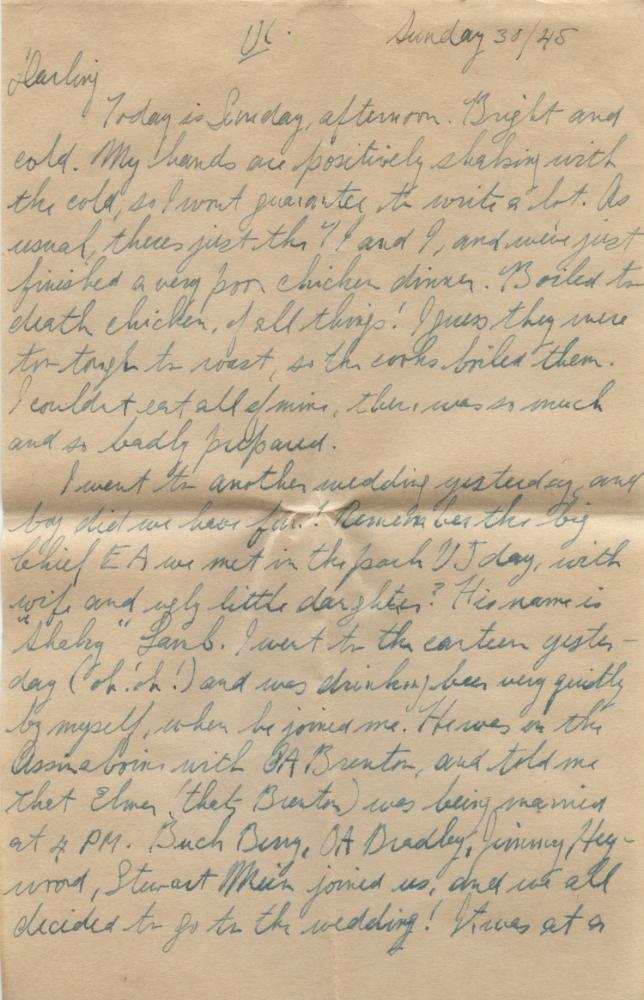 Sunday 30/45
Darling
Today is Sunday, afternoon. Bright and
cold. My hands are positively shaking with
the cold, so I wont guarantee to write a lot. As
usual, theres just the and I, and we've just
finished a very poor chicken dinner. Boiled to
death chicken, of all things! I guess they were
too tough to roast, so the cooks boiled them.
I couldn't eat all of mine, there was so much
and so badly prepared.
I went to another wedding yesterday, and
boy did we have fun! Remember the big
Chief E A we met in the park VJ day, with
wife and ugly little daughter? His name is
Lamb. I went to the canteen yester-
day (oh! oh!) and was drinking beer very quietly
by myself, when he joined me. He was on the
Assinaboine with OA Brenton, and told me
that Elmer (thats Brenton) was being married
at 4 PM. Buck Berry, OA Bradley, Jimmy Hey-
wood, Stewart joined us, and we all
decided to go to the wedding! It was at a